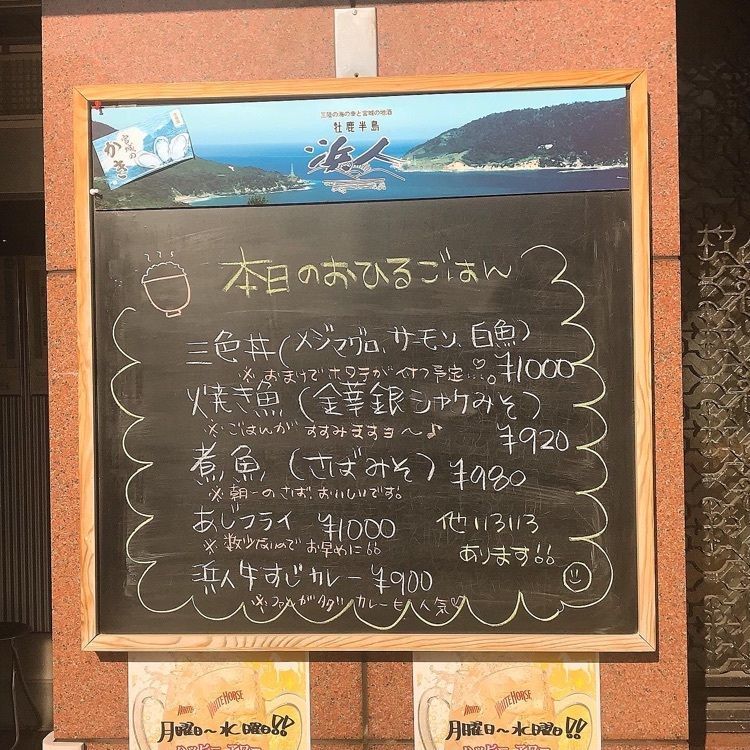 三陸の海の幸と宮城の地酒
牡鹿半島
浜人
宮城の
かき
本日のおひるごはん
三色丼(メジマグロ、サーモン、白魚)
※おまけでホタテがイナつ予定…。♡ ¥1000
焼き魚(金華銀シャケみそ)
※ごはんが すすみますョ〜♪ ¥920
煮魚(さばみそ)¥980
※朝一のさば、おいしいです。
あじフライ ¥1000
※数少ないので お早めに!!
他いろいろ
あります!!
浜人牛すじカレー ¥900
※ファンが タダ カレーも人気♡
WHITE HORSE
月曜日〜水曜日!!
ハッピーアワー
WHITE HORSE
月曜日〜水曜日!!
ハッピーアワー